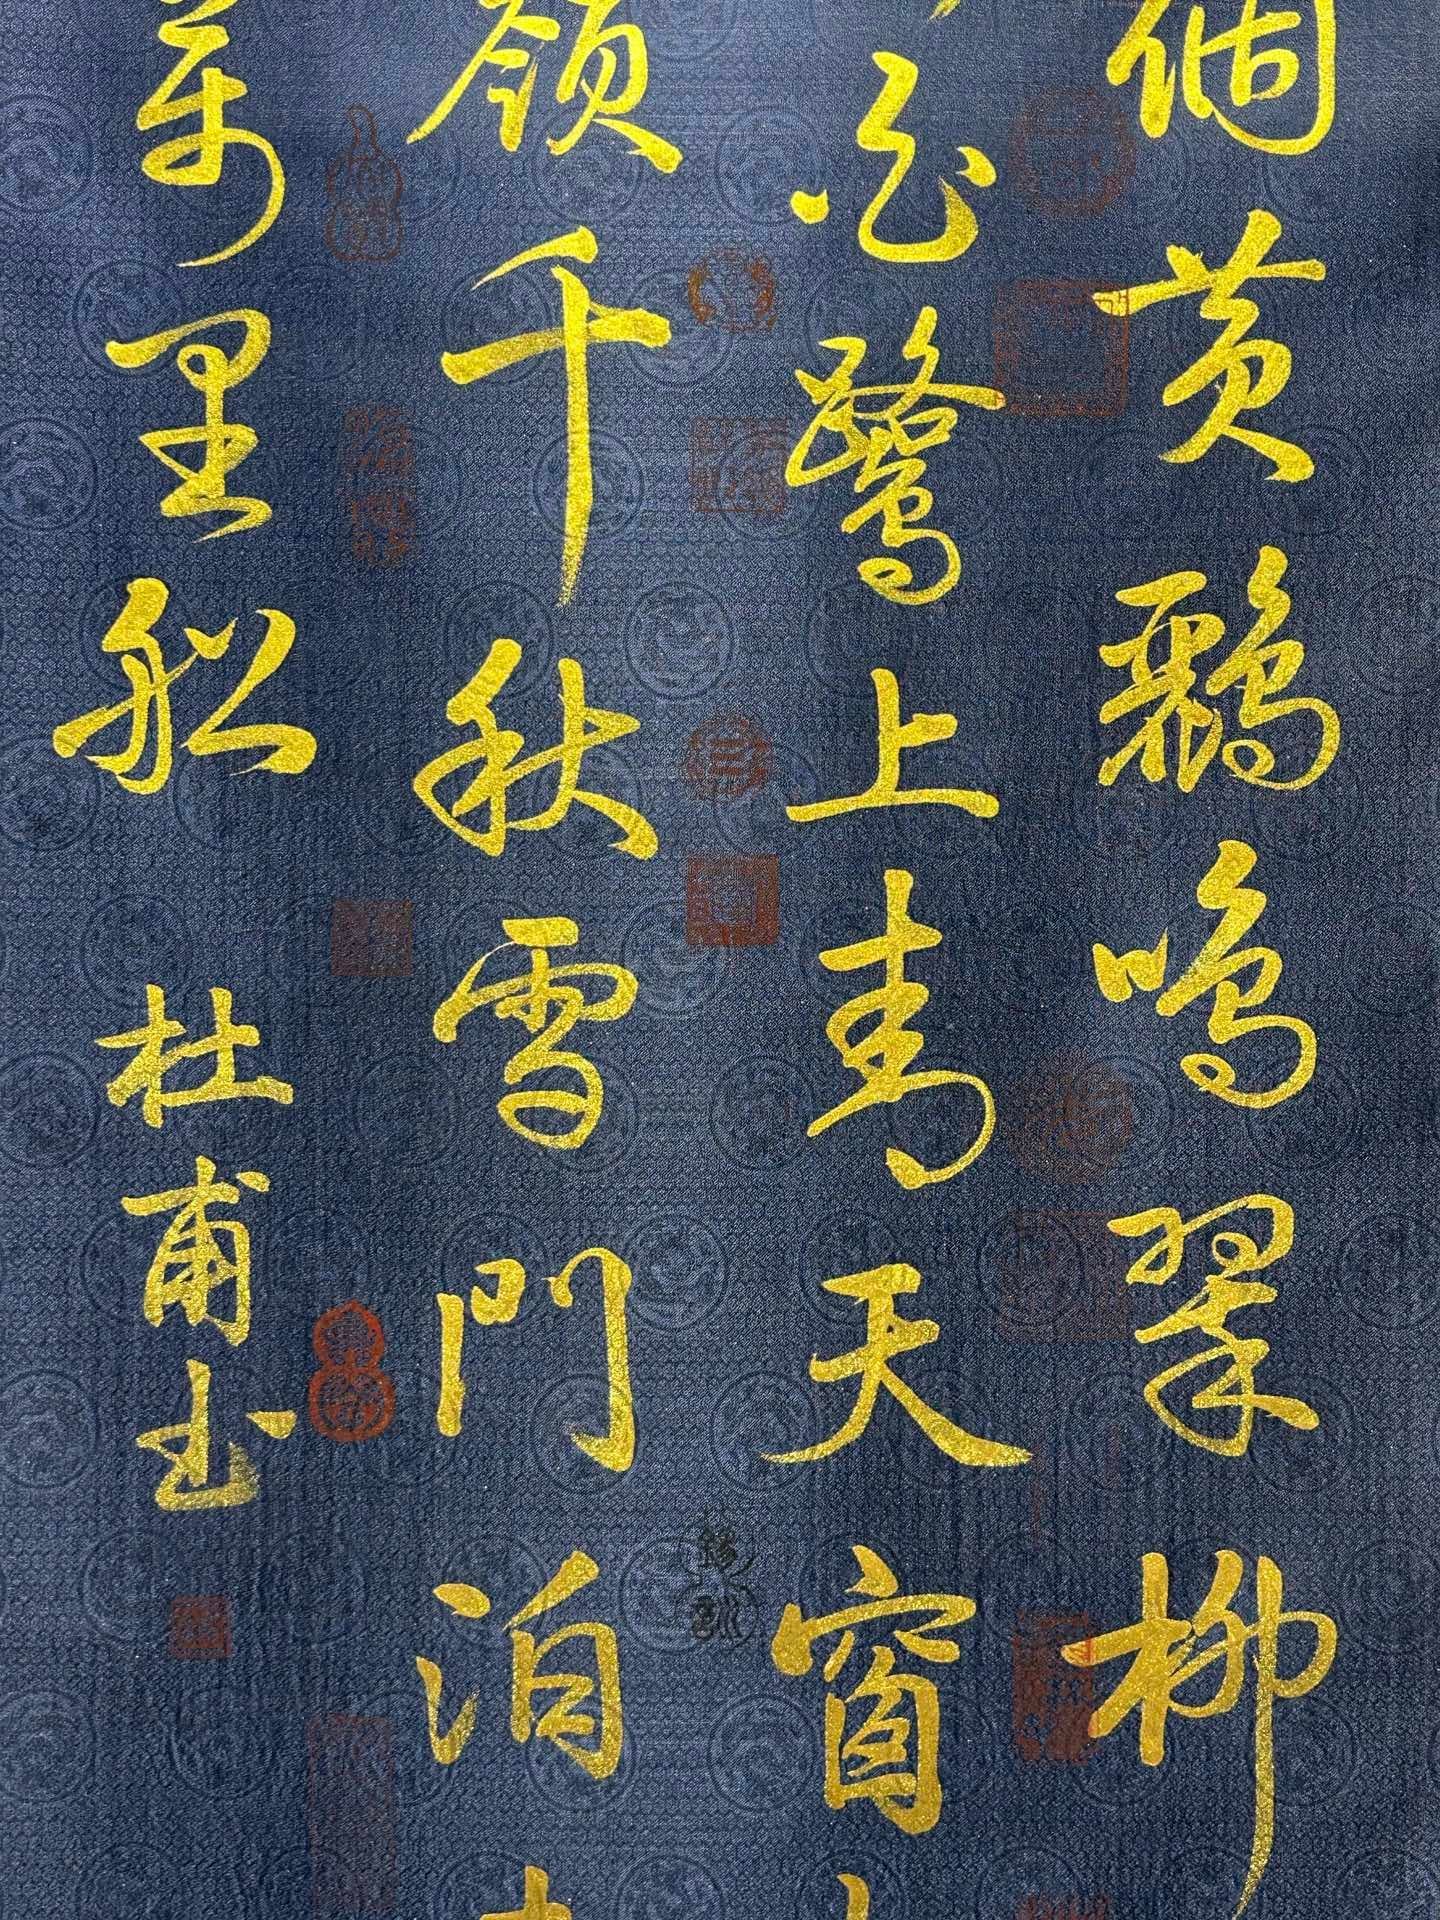 個黃鸝鳴翠柳
白鷺上青天窗
嶺千秋雪門泊
萬里船 杜甫